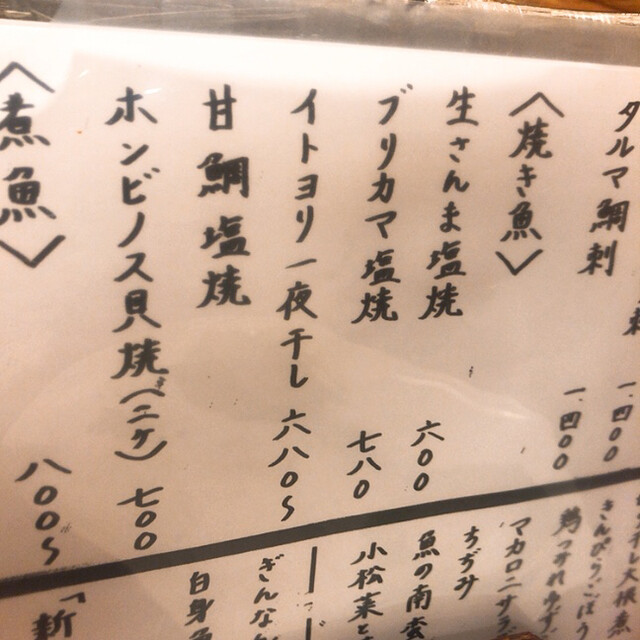 一、四〇〇
タルマ鯛刺 一、四〇〇
〈焼き魚〉
生さんま塩焼 六〇〇
ブリカマ塩焼 七八〇
イトヨリ一夜干し 六八〇〜
甘鯛塩焼
ホンビノス貝焼(二ケ) 七〇〇
〈煮魚〉 八〇〇〜
きんぴらごぼう
マカロニサラ
ちぢみ
魚の南
小松菜と
ぎんな
白身
「新